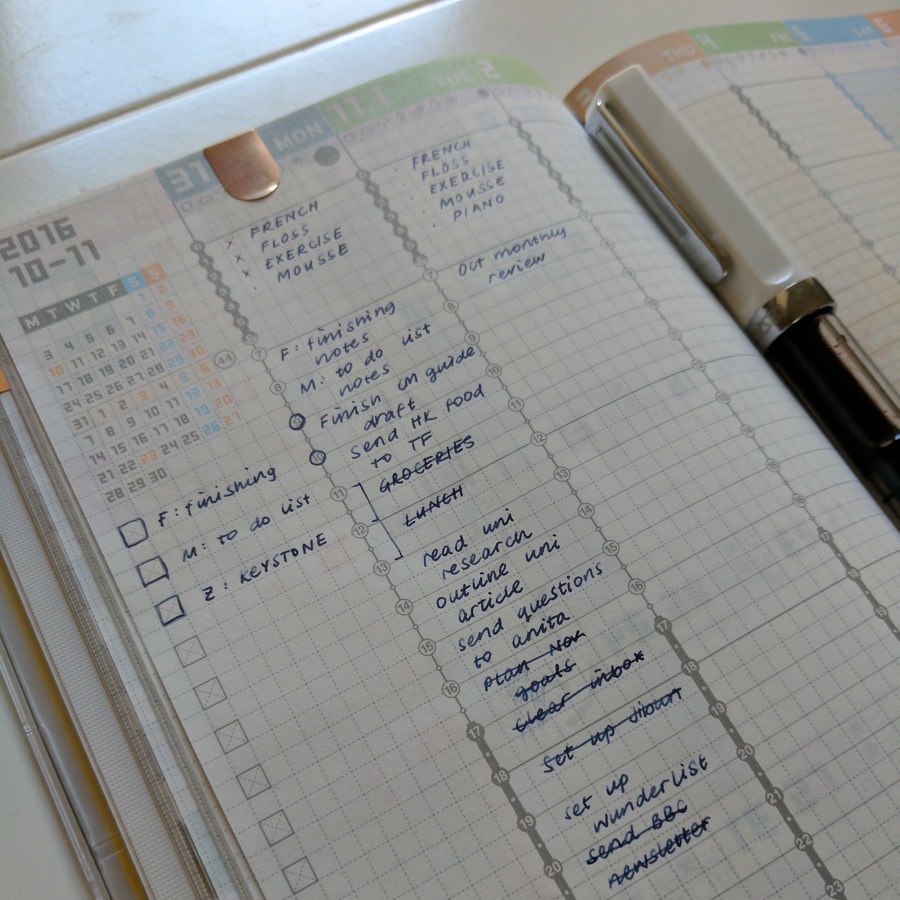 2016
10-11
M T W T F S S
1 2
3 4 5 6 7 8 9
10 11 12 13 14 15 16
17 18 19 20 21 22 23
24 25 26 27 28 29 30
31 1 2 3 4 5 6
7 8 9 10 11 12 13
14 15 16 17 18 19 20
21 22 23 24 25 26 27
28 29 30
F: finishing
M: to do list
Z: KEYSTONE
31 MON
× FRENCH
× FLOSS
× EXERCISE
· MOUSSE
44
7
8
9
10
11
12
13
14
15
16
17
18
19
20
F: finishing
notes
M: to do list
notes
Finish CM guide
draft
send HK food
to TF
GROCERIES
LUNCH
read uni
research
outline uni
article
send questions
to anita
plan Nov
goals
clear inbox
set up
set up
wunderlist
send BBC
newsletter
11.1 TUE 2
· FRENCH
· FLOSS
· EXERCISE
· MOUSSE
· PIANO
Oct monthly
review
7
8
9
10
11
12
13
14
15
16
17
18
19
20
21
22
23
3 THU 4 FRI 5 SAT 6